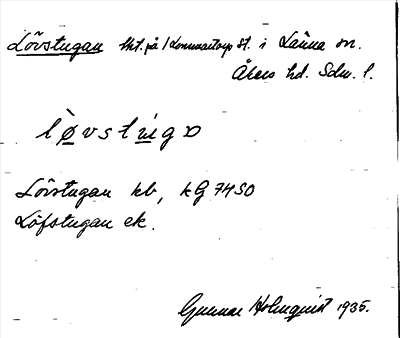 Lövstugan tht. på / Lemmaetorp st. i Länna sn.
Åkers hd. Sdm. l.
lø̀vstu̲gɒ
Lövstugan kb, kG 7450
Löfstugan ek.
Gunnar Holmquist 1935.